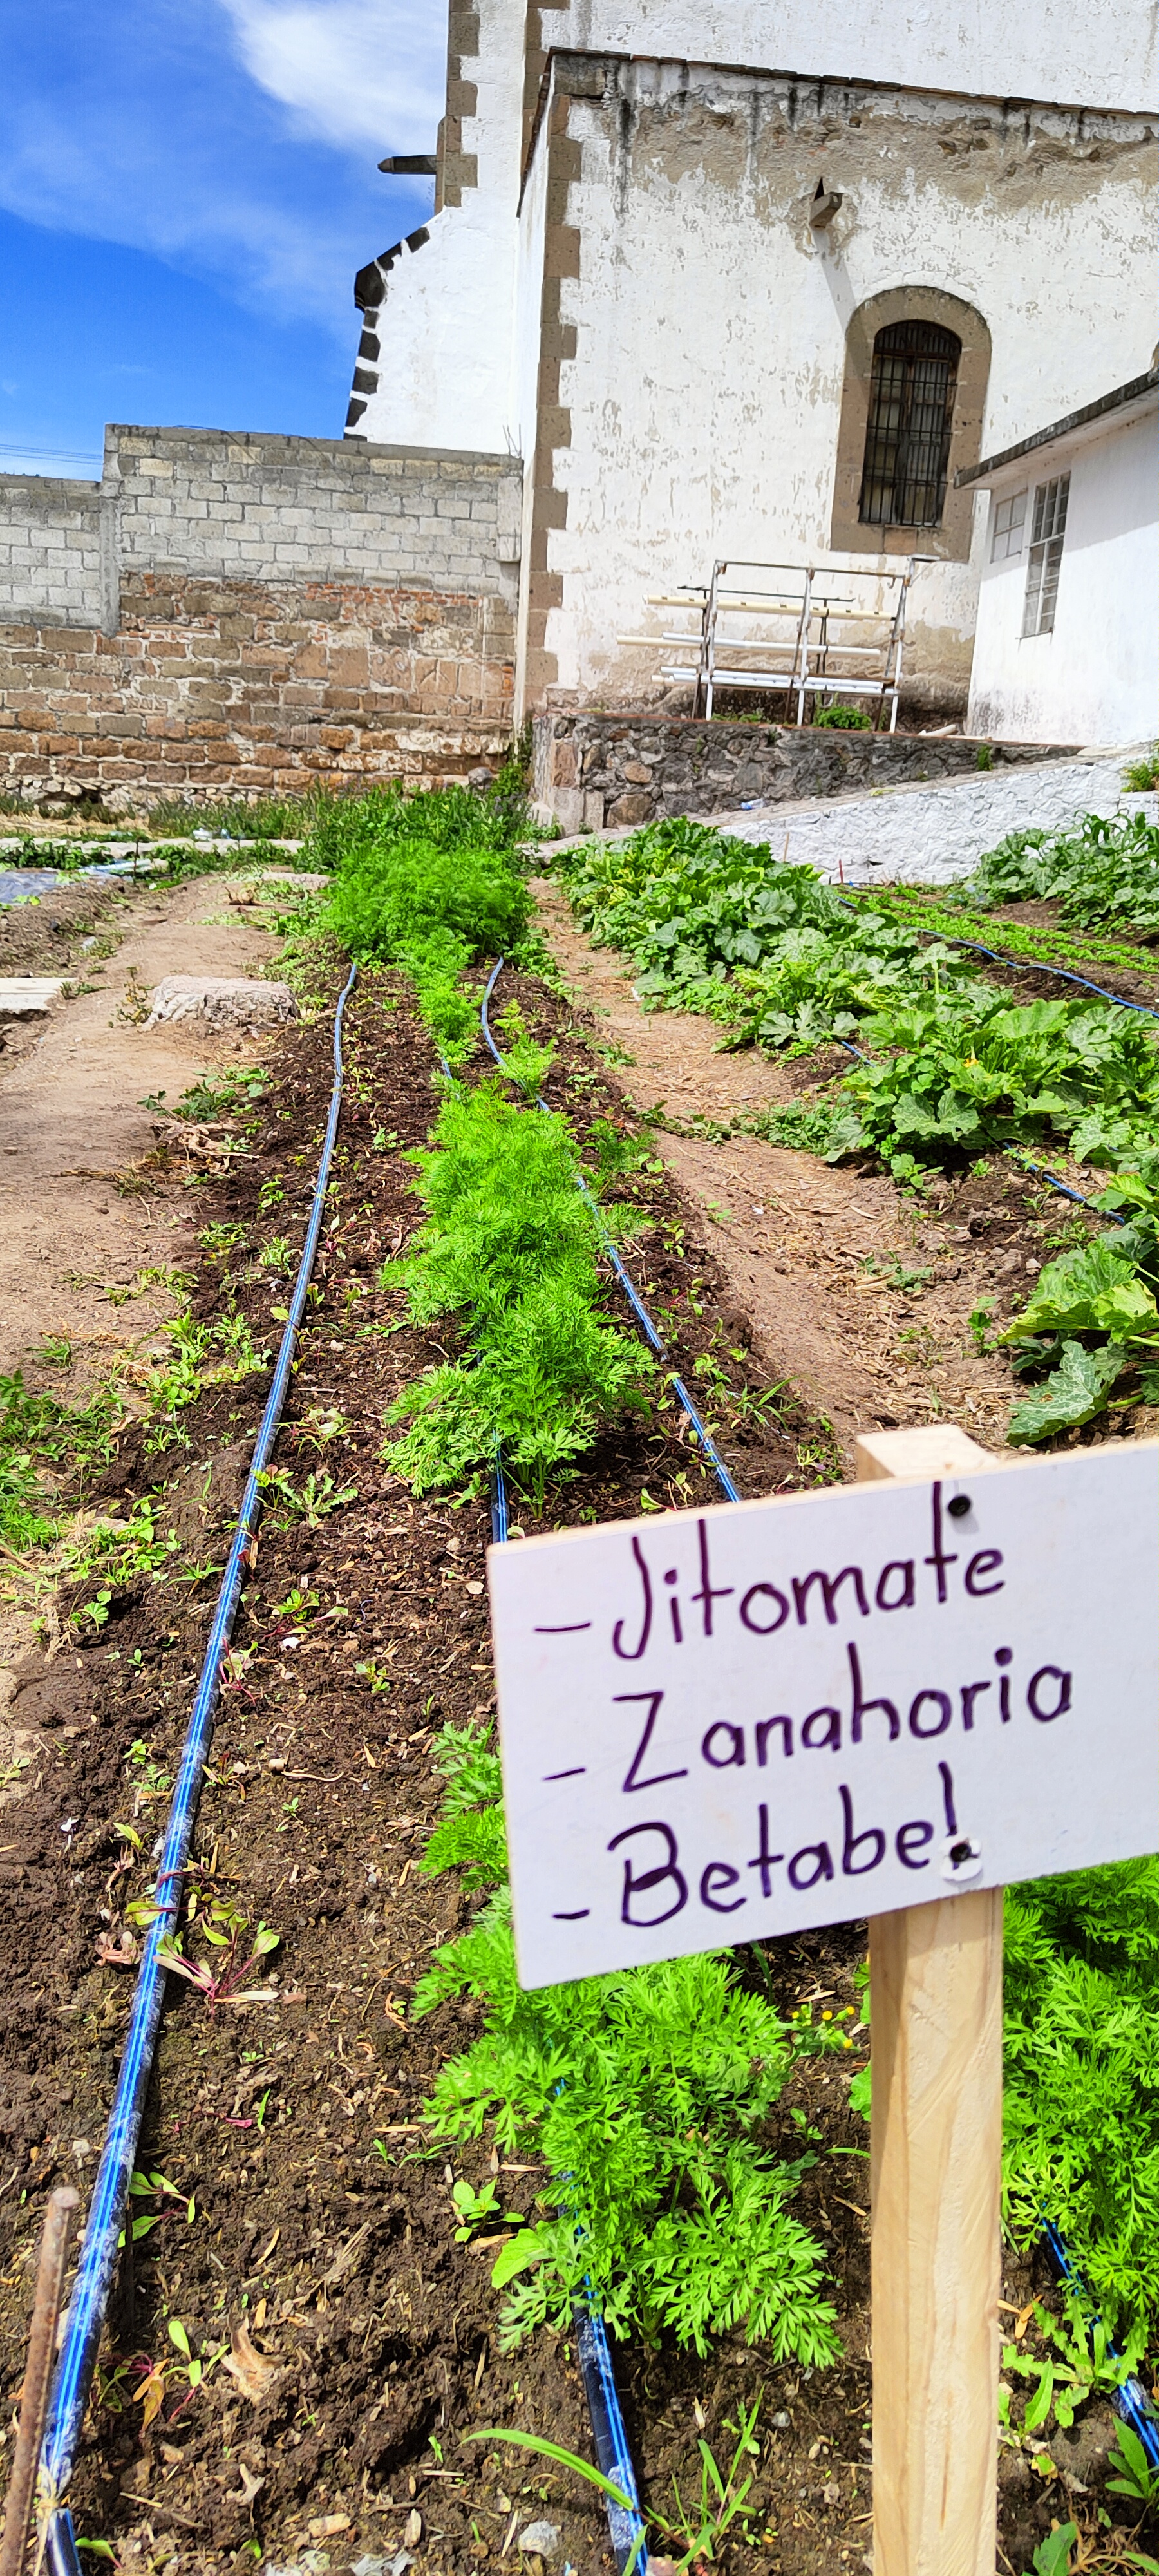 - Jitomate
- Zanahoria
- Betabel